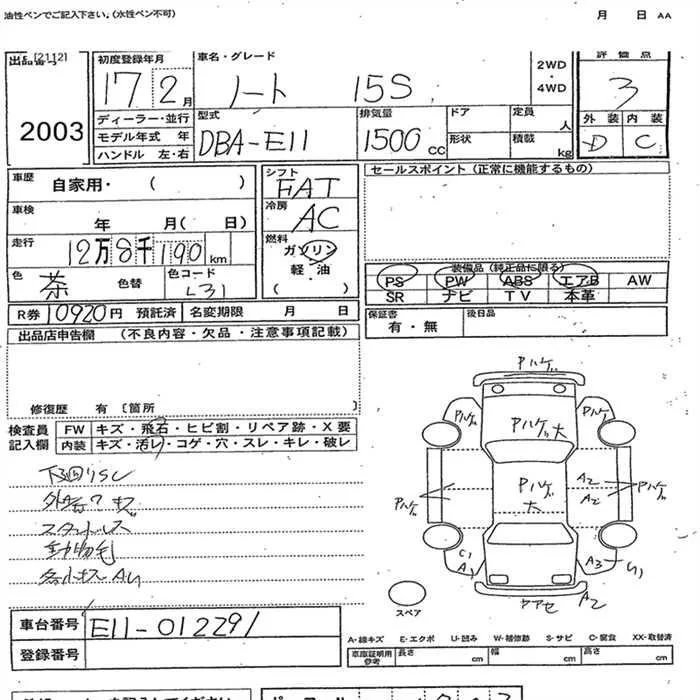 油性ペンでご記入下さい。(水性ペン不可) 月 日 AA
出品番号 [2112] 初度登録年月 車名・グレード 2WD ・ 4WD 評価点
17 2月 ノート 15S 3
2003 ディーラー・並行 型式 排気量 ドア 定員 人 外装 内装
モデル年式 年 DBA-E11 1500cc 形状 積載 kg D C
ハンドル 左・右
車歴 自家用・( ) シフト FAT セールスポイント(正常に機能するもの)
車検 年 月( 日) 冷房 AC
走行 12万8千190km 燃料 ガソリン 軽・油 ( )
色 茶 色替 色コード L31
装備品(純正品に限る)
PS PW ABS エアB AW
SR ナビ TV 本革
R券 10920円 預託済 名変期限 月 日 保証書 有・無 後日品
出品店申告欄 (不良内容・欠品・注意事項記載)
修復歴 有 〔箇所 〕
検査員記入欄 FW キズ・飛石・ヒビ割・リペア跡・X要
内装 キズ・汚レ・コゲ・穴・スレ・キレ・破レ
下回りSC
スタッドレス
動物毛
Pハゲ
Pハゲ Pハゲ大 Pハゲ
Pハゲ Pハゲ大 A2 A2 Pハゲ
C1 A1 A3 U1
A2
スペア
車台番号 E11-012291
登録番号
A-線キズ E-エクボ U-凹み W-補修跡 S-サビ C-腐食 XX-取替済
車庫証明用参考 長さ cm 幅 cm 高さ cm